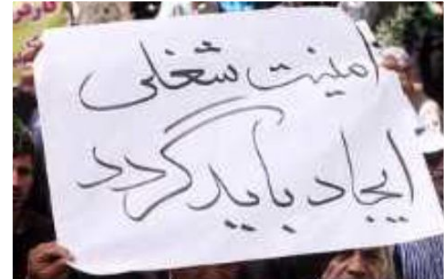 امنیت شغلی
ایجاد باید گردد